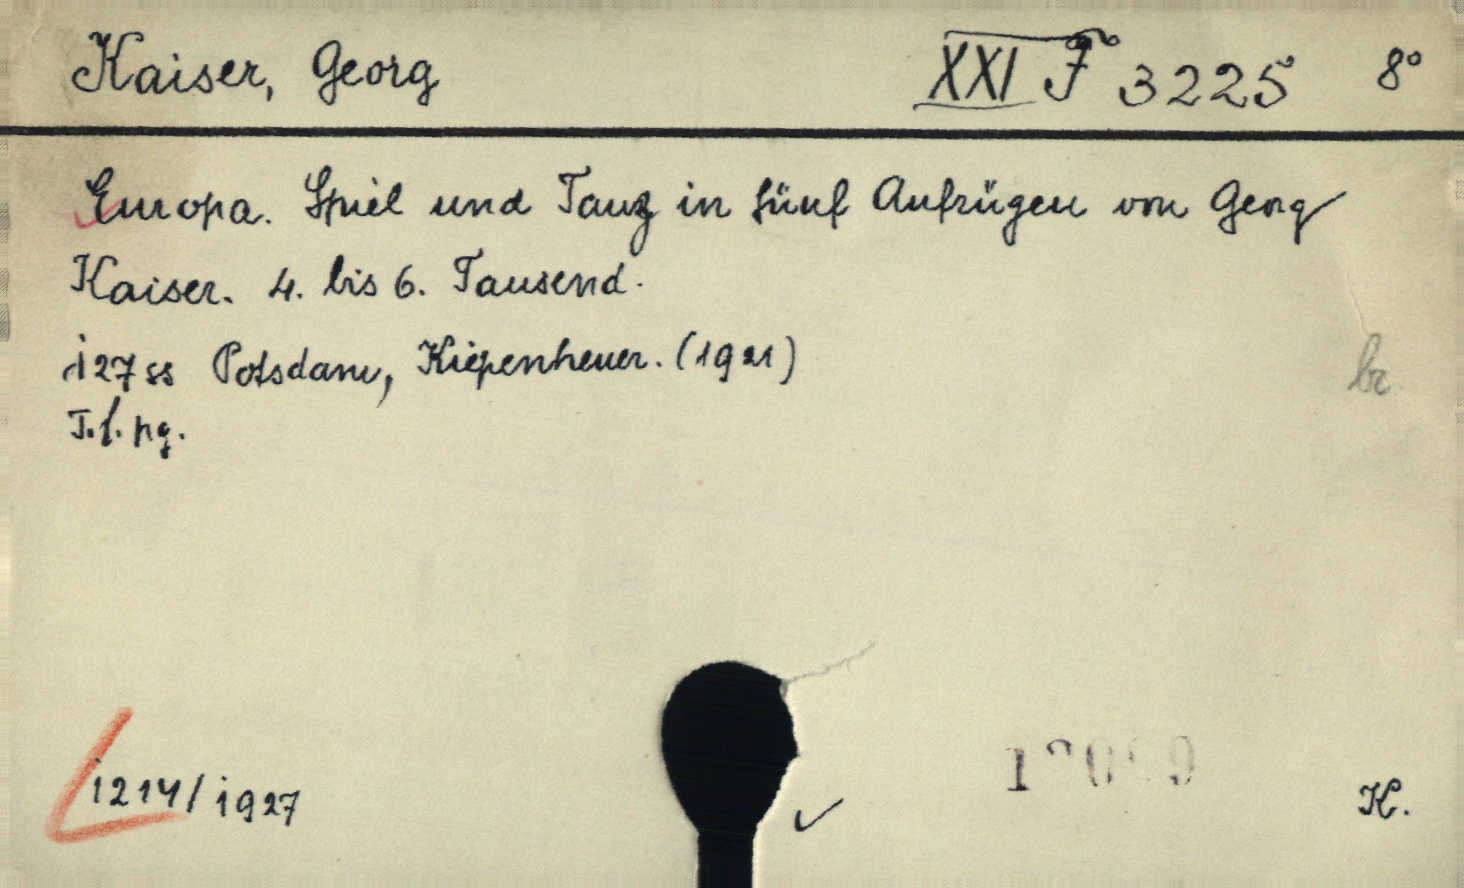 Kaiser, Georg XXI F 3225 8°
Europa. Spiel und Tanz in fünf Aufzügen von Georg
Kaiser. 4. bis 6. Tausend.
127 ss Potsdam, Kiepenheuer. (1921)
br
T. f. pg.
1214/1927
K.